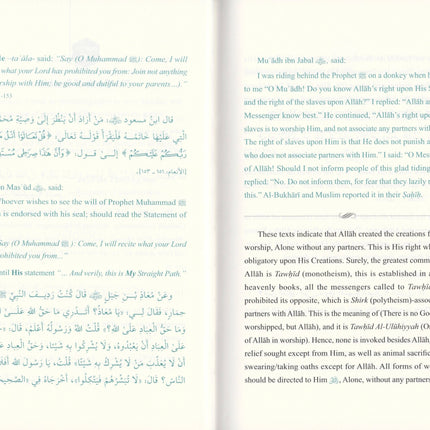 le –ta'āla- said: "Say (O Muhammad ﷺ): Come, I will
what your Lord has prohibited you from: Join not anything
orship with Him; be good and dutiful to your parents...)."
-153
قال ابنُ مسعودٍ : مَنْ أَرَادَ أَنْ يَنْظُرَ إِلَى وَصِيَّةِ مُحَمَّدٍ
الَّتِي عَلَيْهَا خَاتَمُهُ فَلْيَقْرَأْ قَوْلَهُ تَعَالَى: ﴿قُلْ تَعَالَوْا أَتْلُ
رَبُّكُمْ عَلَيْكُمْ﴾ إِلَى قَوْلِهِ: ﴿وَأَنَّ هَذَا صِرَاطِي
[الأنعام: ١٥١ـ ١٥٣].
n Mas'ūd said:
Whoever wishes to see the will of Prophet Muhammad
is endorsed with his seal; should read the Statement of
Say (O Muhammad ﷺ): Come, I will recite what your Lord
ohibited you from..."
until His statement "... And verily, this is My Straight Path."
وَعَنْ مُعَاذِ بْنِ جَبَلٍ قَالَ: كُنْتُ رَدِيفَ النَّبِيِّ
حِمَارٍ، فَقَالَ لِي: «يَا مُعَاذُ؟ أَتَدْرِي مَا حَقُّ اللهِ عَلَى
وَمَا حَقُّ الْعِبَادِ عَلَى اللهِ؟» قُلْتُ: اللهُ وَرَسُولُهُ أَعْلَمُ، قَالَ:
عَلَى الْعِبَادِ أَنْ يَعْبُدُوهُ، وَلَا يُشْرِكُوا بِهِ شَيْئًا، وَحَقُّ الْعِبَادِ
أَنْ لَا يُعَذِّبَ مَنْ لَا يُشْرِكُ بِهِ شَيْئًا» قُلْتُ، يَا رَسُولَ اللهِ أَفَلَا
النَّاسَ؟ قَالَ: «لَا تُبَشِّرْهُمْ فَيَتَّكِلُوا»، أَخْرَجَاهُ فِي «الصَّحِيحَ
Mu'ādh ibn Jabal said:
I was riding behind the Prophet ﷺ on a donkey when h
to me "O Mu'ādh! Do you know Allāh's right upon His S
and the right of the slaves upon Allāh?" I replied: "Allāh a
Messenger know best." He continued, "Allāh's right upo
slaves is to worship Him, and not associate any partners with
The right of slaves upon Him is that He does not punish a
who does not associate partners with Him." I said: "O Mes
of Allāh! Should I not inform people of this glad tiding
replied: "No. Do not inform them, for fear that they lazily
this." Al-Bukhārī and Muslim reported it in their Ṣaḥīḥ.
These texts indicate that Allāh created the creations f
worship, Alone without any partners. This is His right wh
obligatory upon His Creations. Surely, the greatest comm
Allāh is Tawḥīd (monotheism), this is established in a
heavenly books, all the messengers called to Tawḥī
prohibited its opposite, which is Shirk (polytheism)–assoc
partners with Allāh. This is the meaning of (There is no Goc
worshipped, but Allāh), and it is Tawḥīd Al-Ulūhiyyah (On
of Allāh in worship). Hence, none is invoked besides Allāh,
relief sought except from Him, as well as animal sacrific
swearing/taking oaths except for Allāh. All forms of w
should be directed to Him, Alone, without any partner